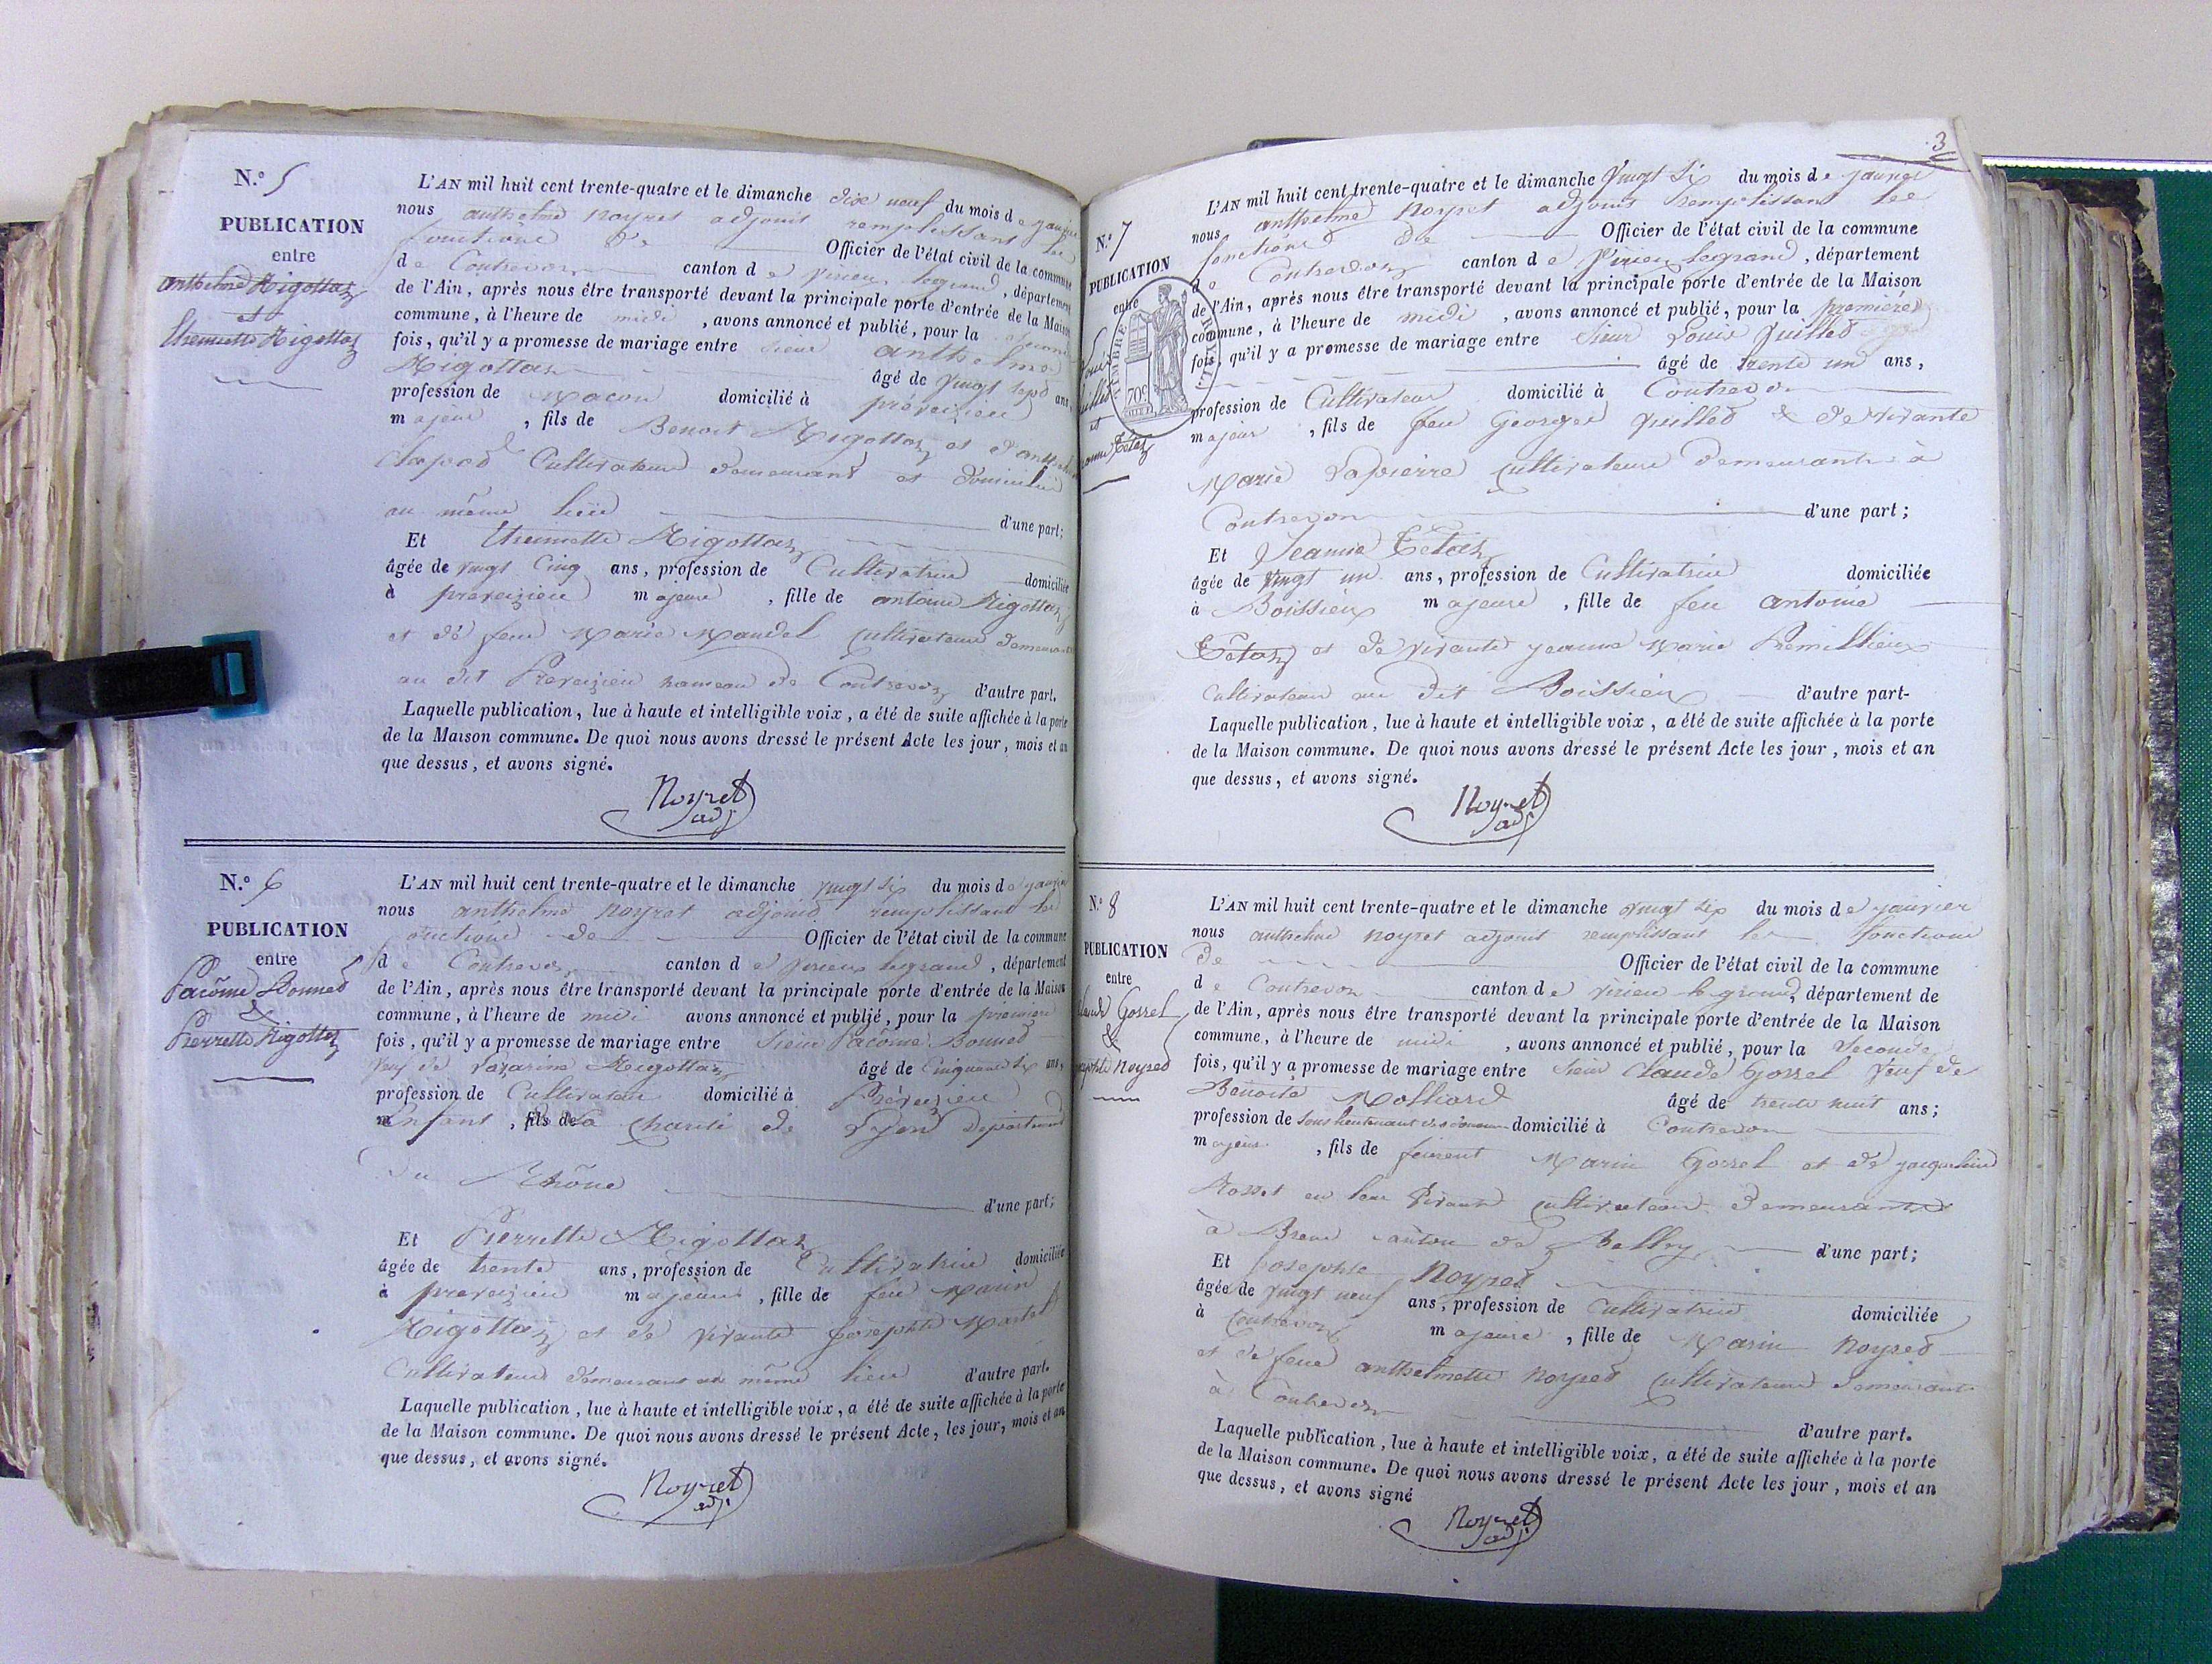 N.º 5
PUBLICATION
entre
anthelme Rigottaz
et
theinette Rigottaz
L'AN mil huit cent trente-quatre et le dimanche dixe neuf du mois de janvier
nous anthelme Noyret adjoint remplissant les
fonctions de Officier de l'état civil de la commune
de Contrevoz canton de Virieu legrand, département
de l'Ain, après nous être transporté devant la principale porte d'entrée de la Maison
commune, à l'heure de midi, avons annoncé et publié, pour la seconde
fois, qu'il y a promesse de mariage entre sieur anthelme
Rigottaz âgé de vingt sept ans,
profession de Macon domicilié à préveizieu
majeur, fils de Benoit Rigottaz et d'anthelmette
Cultivateurs demeurant et domiciliés
au même lieu d'une part;
Et theinette Rigottaz
âgée de vingt Cinq ans, profession de Cultivatrice domiciliée
à préveizieu majeure, fille de antoine Rigottaz
et de feue Marie Mandel Cultivateurs demeurant
au dit Preveizieu hameau de Contrevoz d'autre part.
Laquelle publication, lue à haute et intelligible voix, a été de suite affichée à la porte
de la Maison commune. De quoi nous avons dressé le présent Acte les jour, mois et an
que dessus, et avons signé.
Noyret
adj
N.º 6
PUBLICATION
entre
Pacôme Bonned
&
Pierrette Rigottaz
L'AN mil huit cent trente-quatre et le dimanche vingt six du mois de janvier
nous anthelme Noyret adjoint remplissant les
fonctions de Officier de l'état civil de la commune
de Contrevoz canton de Virieu legrand, département
de l'Ain, après nous être transporté devant la principale porte d'entrée de la Maison
commune, à l'heure de midi avons annoncé et publié, pour la premiere
fois, qu'il y a promesse de mariage entre Sieur Pacôme Bonned
veuf de Lazarine Rigottaz âgé de Cinquante six ans,
profession de Cultivateur domicilié à Préveizieu
Enfant, fils de La Charité de Lyon Departement
du Rhône d'une part;
Et Pierrette Rigottaz
âgée de trente ans, profession de Cultivatrice domiciliée
à preveizieu majeure, fille de feu Marin
Rigottaz et de vivante Josephte Martel
Cultivateurs demeurant au même lieu d'autre part.
Laquelle publication, lue à haute et intelligible voix, a été de suite affichée à la porte
de la Maison commune. De quoi nous avons dressé le présent Acte, les jour, mois et an
que dessus, et avons signé.
Noyret
adj
3
N.º 7
PUBLICATION
entre
et
Tétaz
TIMBRE ROYAL
70c
L'AN mil huit cent trente-quatre et le dimanche Vingt Six du mois de janvier
nous anthelme Noyret adjoint remplissant les
fonctions de Officier de l'état civil de la commune
de Contrevoz canton de Virieu legrand, département
de l'Ain, après nous être transporté devant la principale porte d'entrée de la Maison
commune, à l'heure de midi, avons annoncé et publié, pour la première
fois, qu'il y a promesse de mariage entre Sieur Louis Juilled
âgé de trente un ans,
profession de Cultivateur domicilié à Contrevoz
majeur, fils de feu Georges Juilled & de vivante
Marie Lapierre Cultivateurs demeurants à
Contrevoz d'une part;
Et Jeanne Tétaz
âgée de vingt un ans, profession de Cultivatrice domiciliée
à Boissieu majeure, fille de feu antoine
Tétaz et de vivante jeanne Marie Premillieux
Cultivateurs au dit Boissieu d'autre part-
Laquelle publication, lue à haute et intelligible voix, a été de suite affichée à la porte
de la Maison commune. De quoi nous avons dressé le présent Acte les jour, mois et an
que dessus, et avons signé.
Noyret
adj
N.º 8
PUBLICATION
entre
Claude Gorrel
&
josephte Noyred
L'AN mil huit cent trente-quatre et le dimanche vingt six du mois de janvier
nous anthelme Noyret adjoint remplissant les fonctions
de Officier de l'état civil de la commune
de Contrevoz canton de Virieu le grand, département de
de l'Ain, après nous être transporté devant la principale porte d'entrée de la Maison
commune, à l'heure de midi, avons annoncé et publié, pour la Seconde
fois, qu'il y a promesse de mariage entre Sieur Claude Gorrel veuf de
Benoite Molliard âgé de trente huit ans;
profession de Sous lieutenant des douanes domicilié à Contrevoz
majeur, fils de feurent Marin Gorrel et de jacqueline
Rosset en leur vivant Cultivateurs demeurants
à Brens Canton de Belley d'une part;
Et josephte Noyred
âgée de vingt neuf ans, profession de Cultivatrice domiciliée
à Contrevoz majeure, fille de Marin Noyred
et de feue anthelmette Noyred Cultivateurs demeurant
à Contrevoz d'autre part.
Laquelle publication, lue à haute et intelligible voix, a été de suite affichée à la porte
de la Maison commune. De quoi nous avons dressé le présent Acte les jour, mois et an
que dessus, et avons signé
Noyret
adj